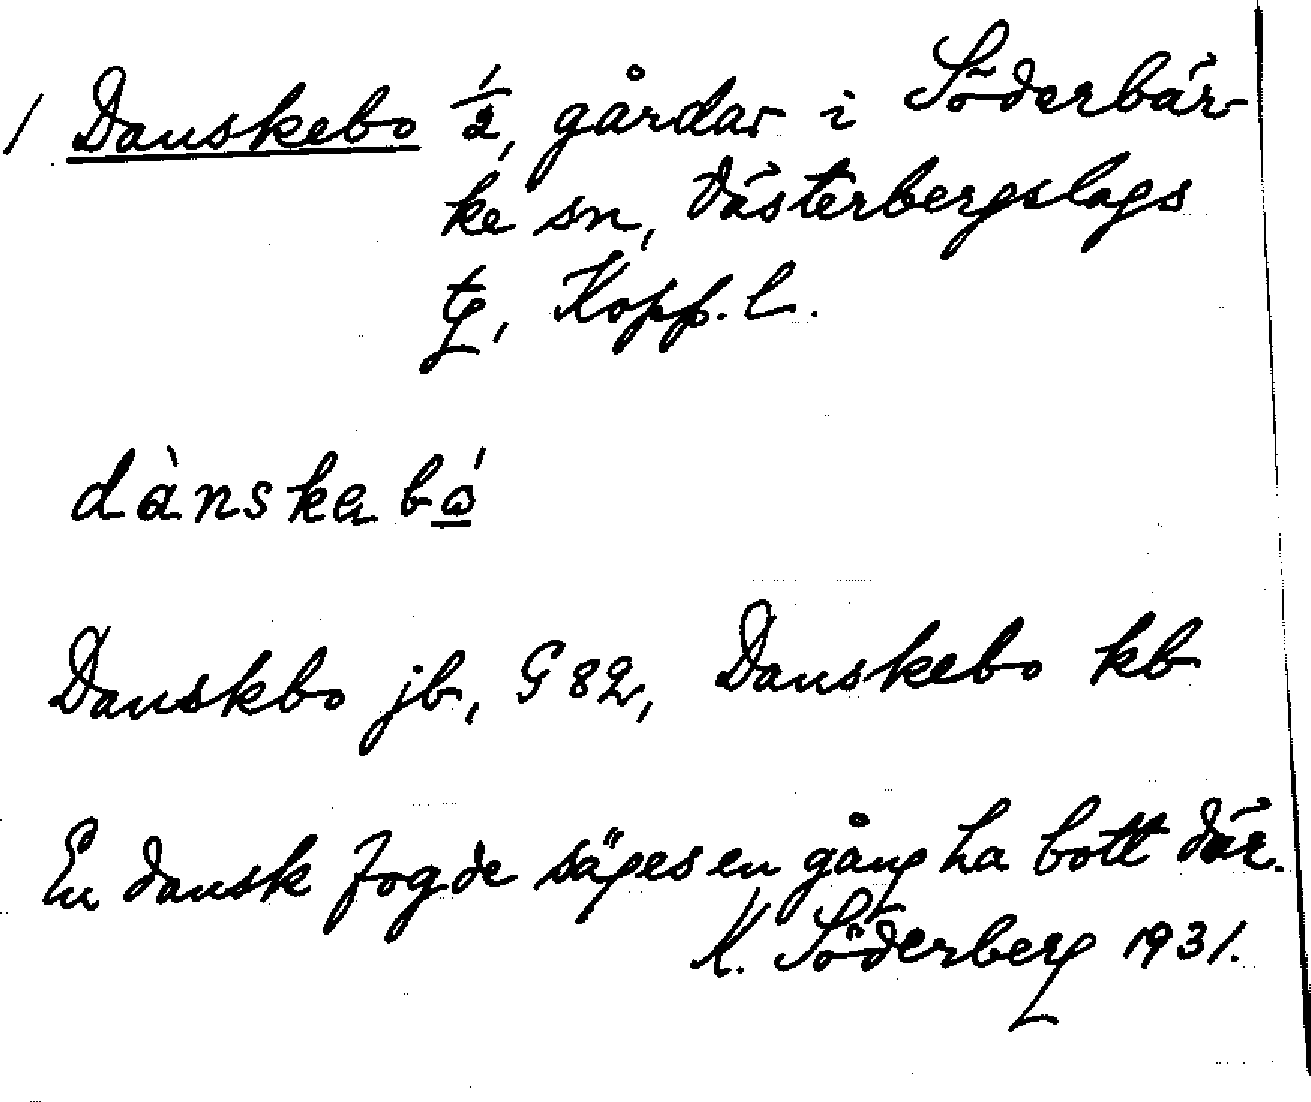 1 Danskebo 1/2, gårdar i Söderbär-
ke sn, Västerbergslags
tg, Kopp. l.
dànskabó
Danskbo jb, G 82, Danskebo kb
En dansk fogde säges en gång ha bott där.
K. Söderberg 1931.